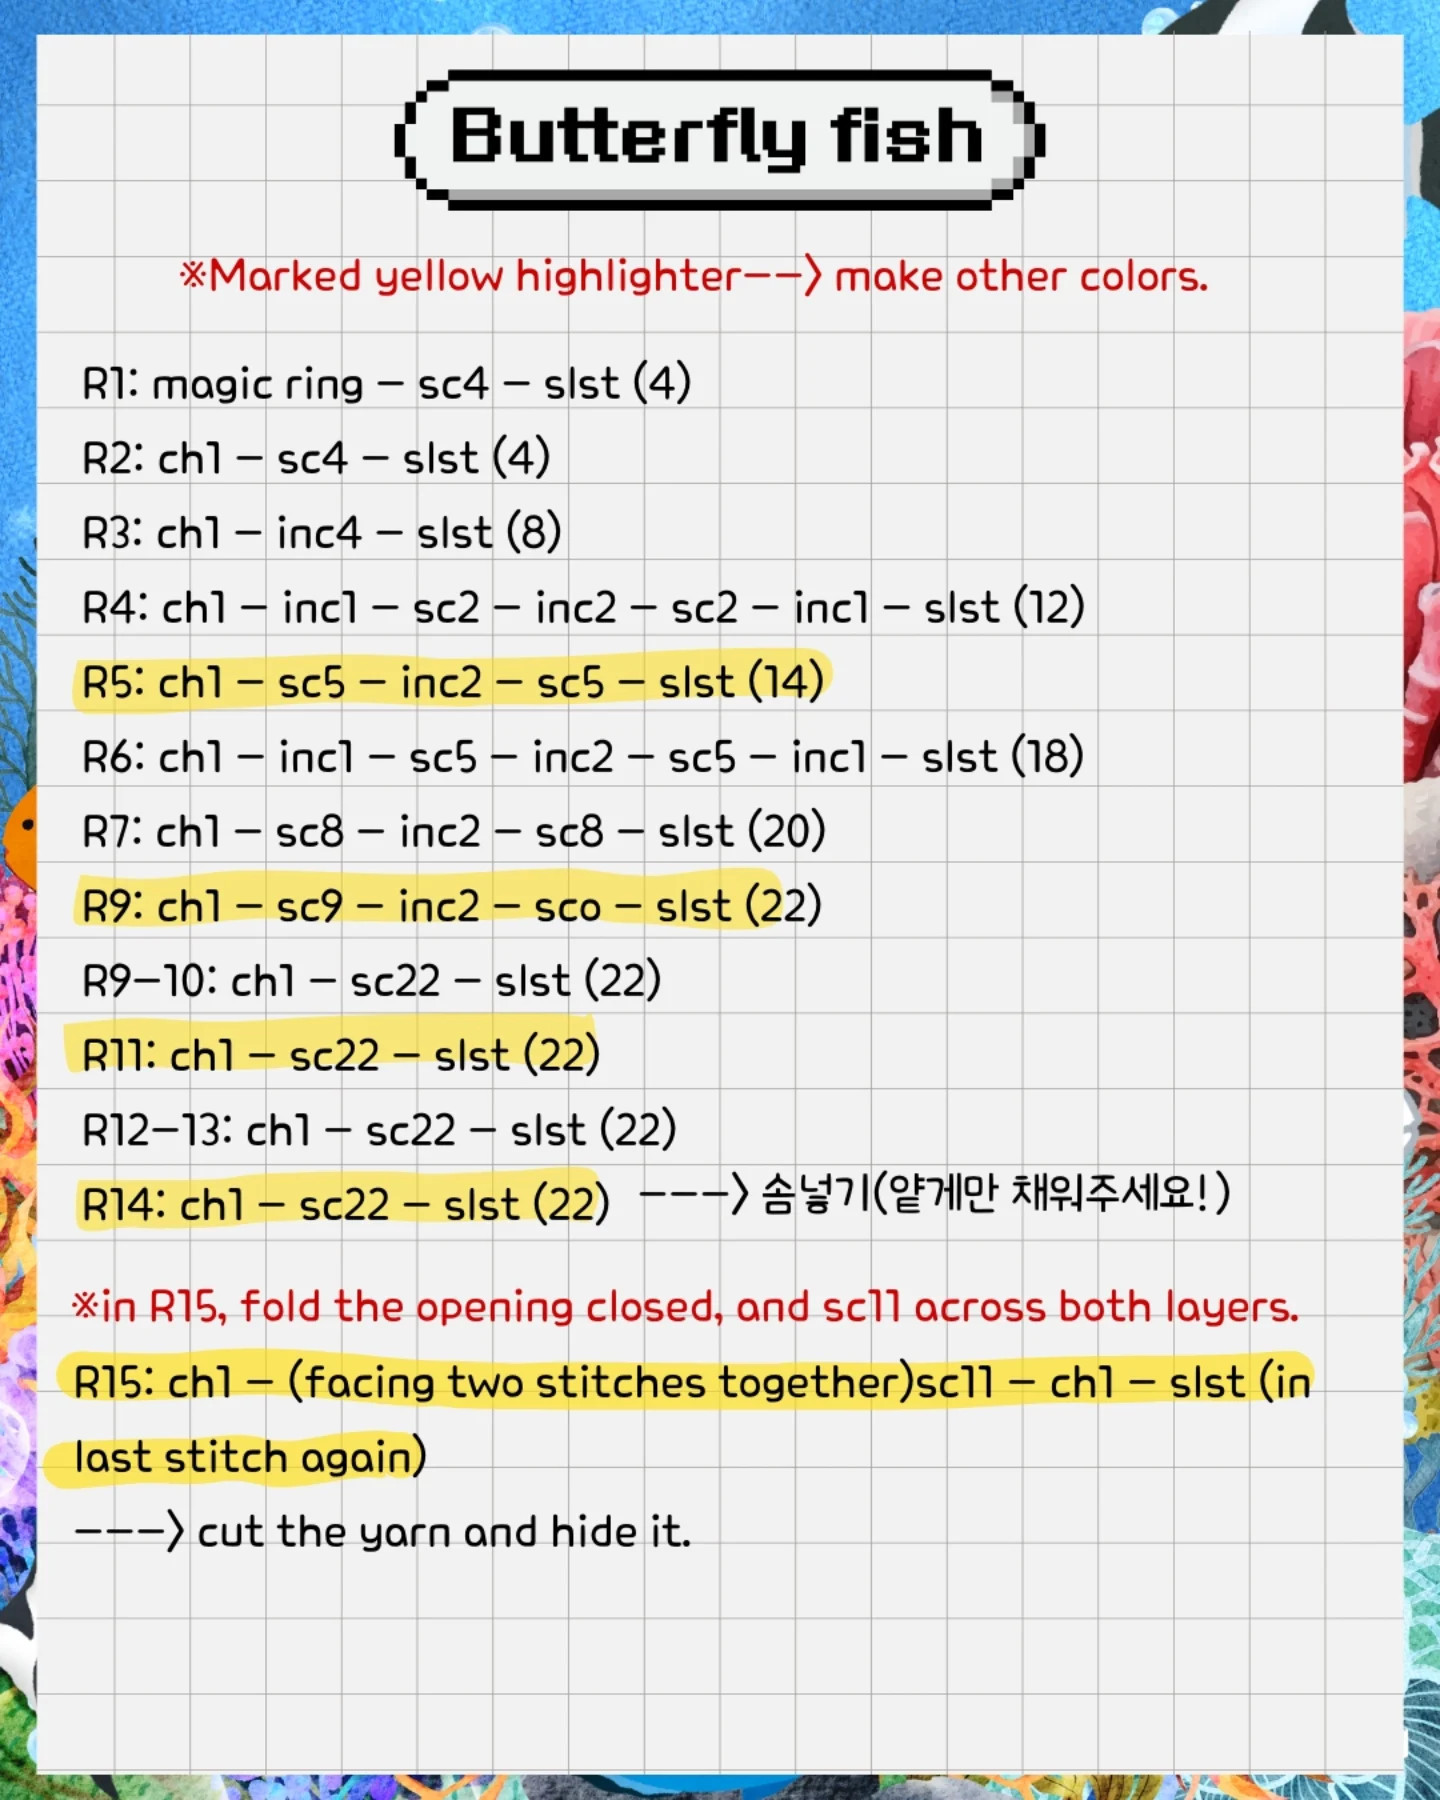 Butterfly fish
※Marked yellow highlighter--> make other colors.
R1: magic ring - sc4 - slst (4)
R2: ch1 - sc4 - slst (4)
R3: ch1 - inc4 - slst (8)
R4: ch1 - inc1 - sc2 - inc2 - sc2 - inc1 - slst (12)
R5: ch1 - sc5 - inc2 - sc5 - slst (14)
R6: ch1 - inc1 - sc5 - inc2 - sc5 - inc1 - slst (18)
R7: ch1 - sc8 - inc2 - sc8 - slst (20)
R9: ch1 - sc9 - inc2 - sco - slst (22)
R9-10: ch1 - sc22 - slst (22)
R11: ch1 - sc22 - slst (22)
R12-13: ch1 - sc22 - slst (22)
R14: ch1 - sc22 - slst (22) ---> 솜넣기(얕게만 채워주세요!)
※in R15, fold the opening closed, and sc11 across both layers.
R15: ch1 - (facing two stitches together)sc11 - ch1 - slst (in
last stitch again)
---> cut the yarn and hide it.